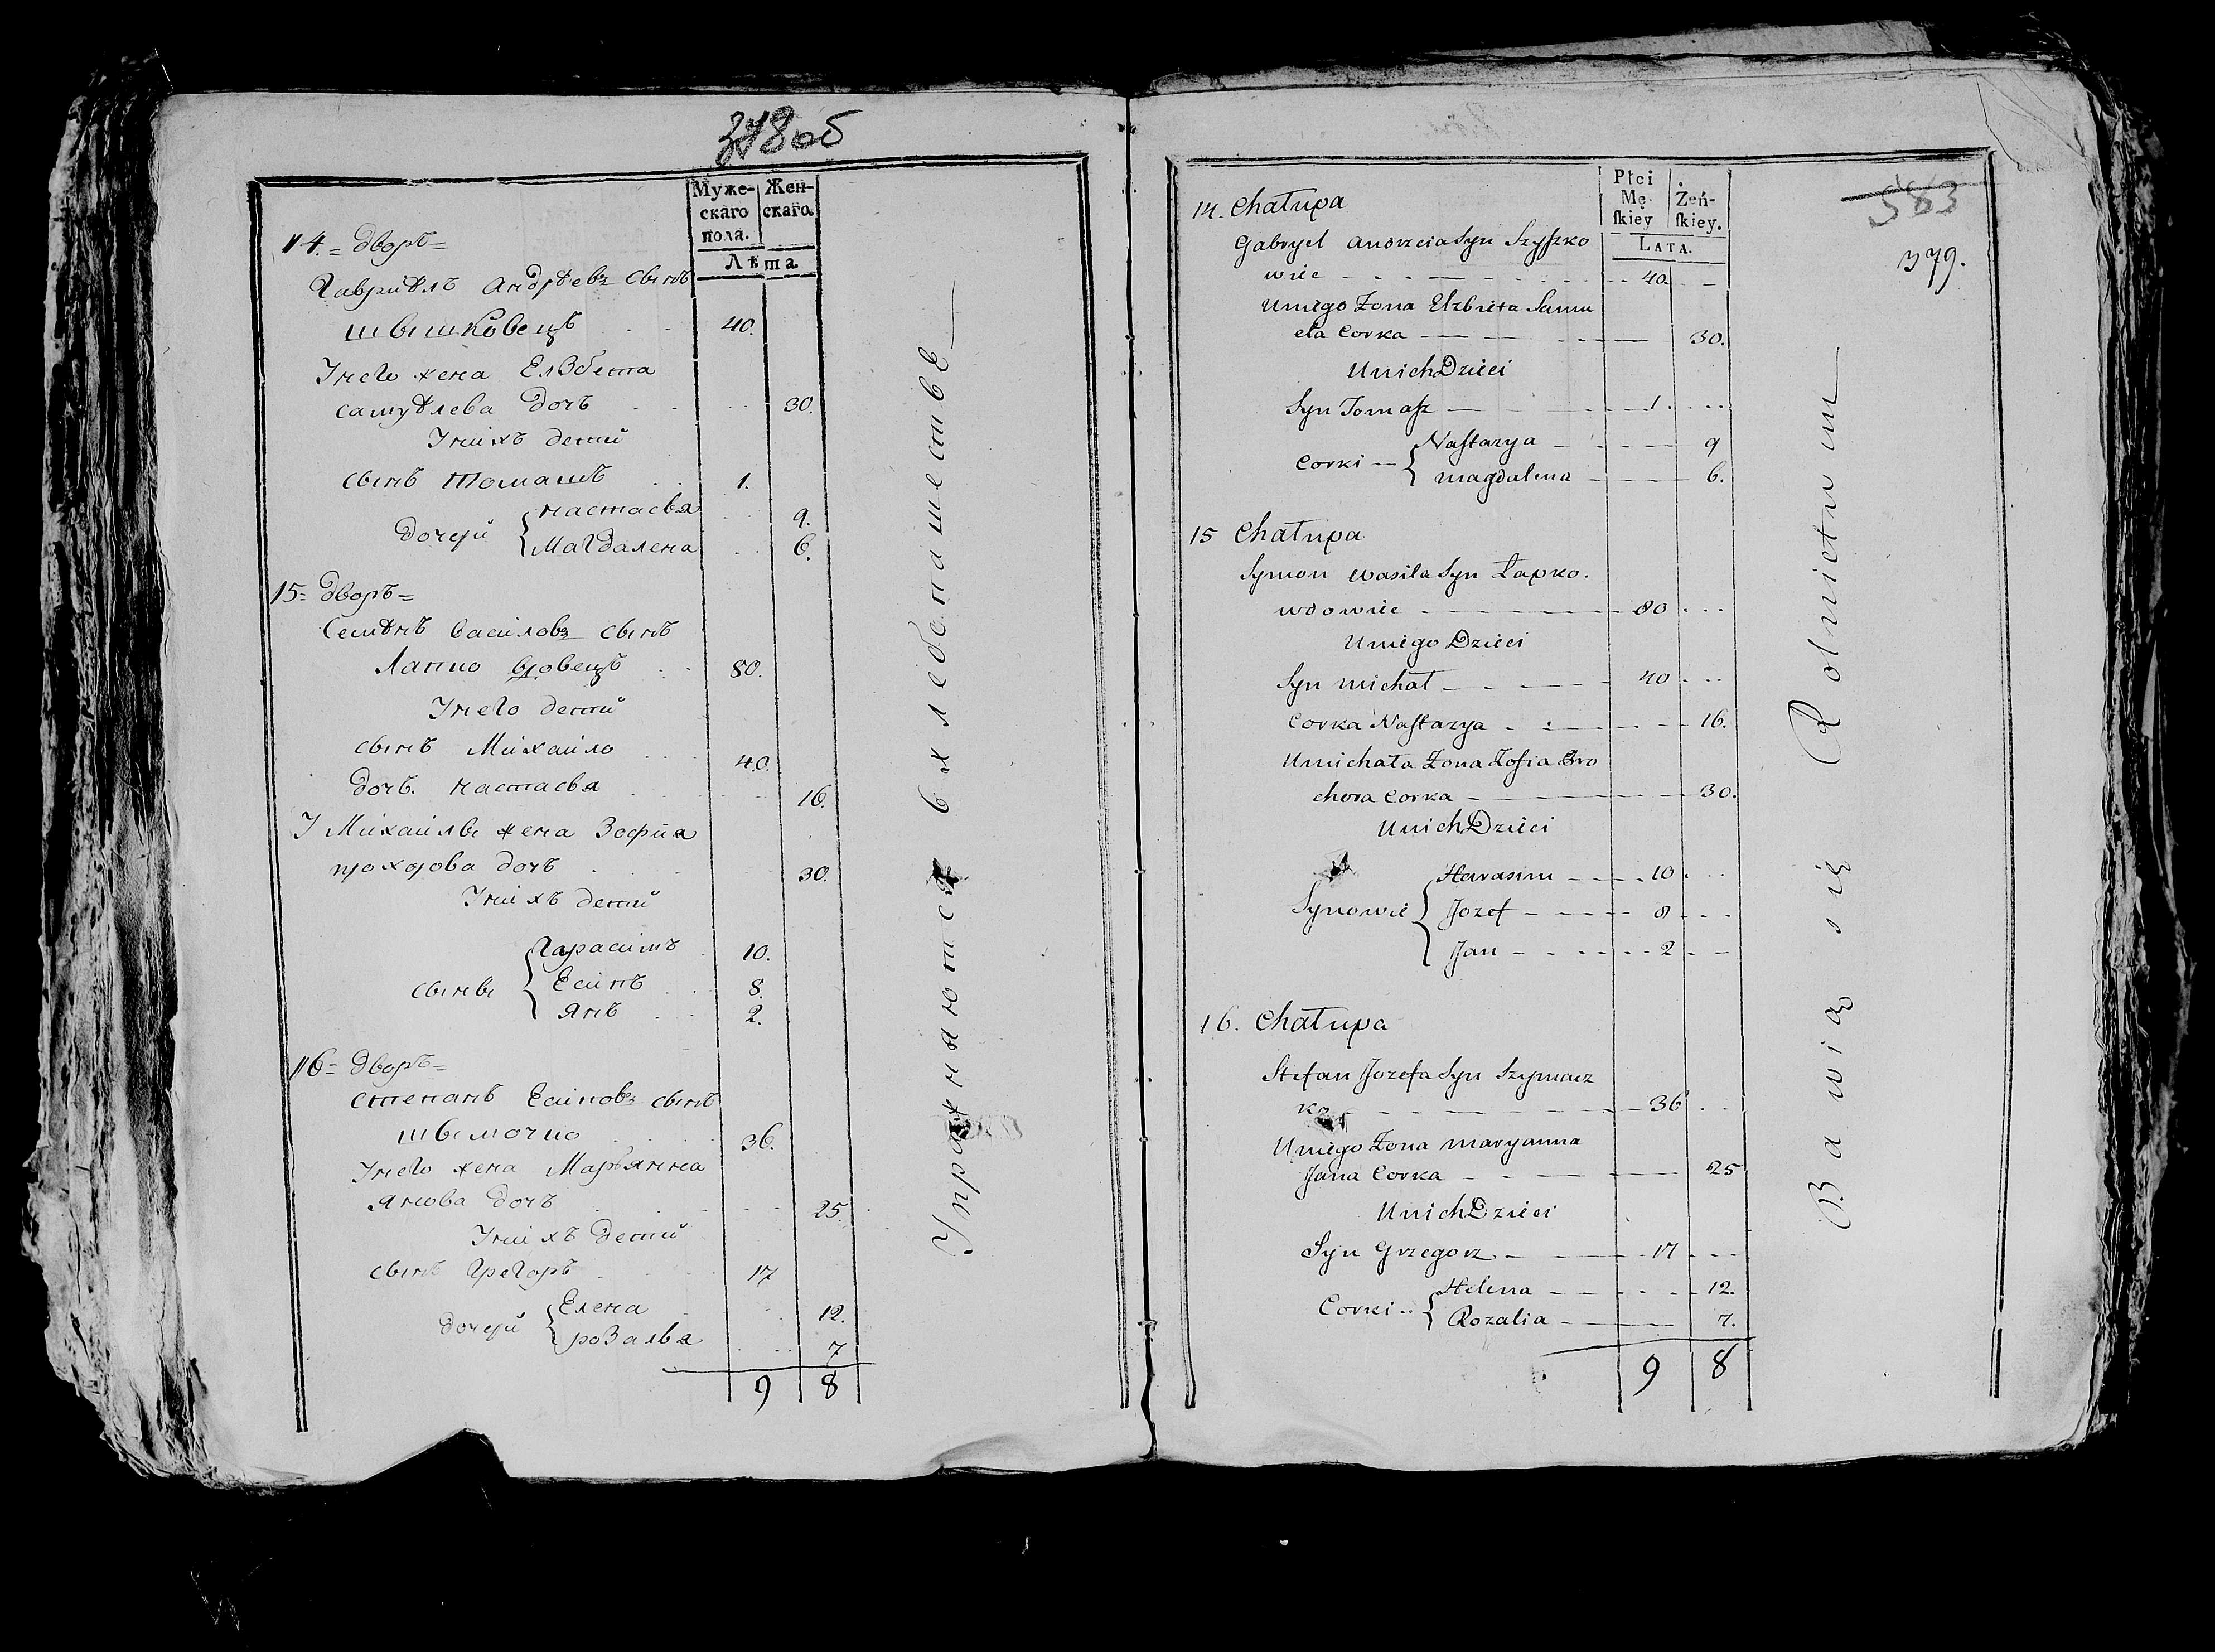 378 об
Муже-
скаго
пола.
Жен-
скаго.
Лѣта
14.= дворъ=
Гавріѣлъ Андрѣевъ сынъ
шышковецъ . . 40.
Унего жена Елзбета
самуѣлева дочъ . . . 30.
Унихъ детий
сынъ Томашъ . . 1.
дочери { настасья . . 9.
Магдалена . . 6.
15= дворъ=
Семѣнъ василовъ сынъ
Лапко вдовецъ . . 80.
Унего детий
сынъ Михайло . . . 40.
дочъ. настасья . . . 16.
У Михайлы жена Зофия
прохорова дочъ . . . 30.
Унихъ детий
сыны { Гарасимъ . 10.
Есипъ . . 8.
Янъ . . 2.
16= дворъ=
степанъ Есиповъ сынъ
шымочко . . . 36.
Унего жена Марьянна
янова дочъ . . . 25.
Унихъ детий
сынъ Грегоръ . . . 17
дочери { Елена . . 12.
розалья . . . 7
9 8
Упражняются в хлебопашестве
583
379.
Płci
Mę-
ſkiey
Żeń-
ſkiey.
LATA.
14. Chałupa
Gabryel Andrzeia Syn Szyſzko
wiec - - - 40 - -
Uniego Żona Elzbieta Samu
ela Corka - - - 30.
Unich Dzieci
Syn Tomaſz - - - 1. . . .
Corki - { Naſtazya - - - 9
Magdalena - - - 6.
15 Chałupa
Symon Wasila Syn Łapko.
wdowiec - - - 80 . . .
Uniego Dzieci
Syn Michał - - - 40 . . .
Corka Naſtazya - - - 16.
Umichała Żona Zofia Pro
chora Corka - - - 30.
Unich Dzieci
Synowie { Harasim - - - 10 . . .
Jozef - - - 8 - - -
Jan - - - 2 - -
16. Chałupa
Stefan Jozefa Syn Szymacz
ko - - - 36 . .
Uniego Żona Maryanna
Jana Corka - - - 25
Unich Dzieci
Syn Grzegorz - - - 17 - - -
Corki - { Helena - - - 12.
Rozalia - - - 7.
9 8
Bawią się Rolnictwem